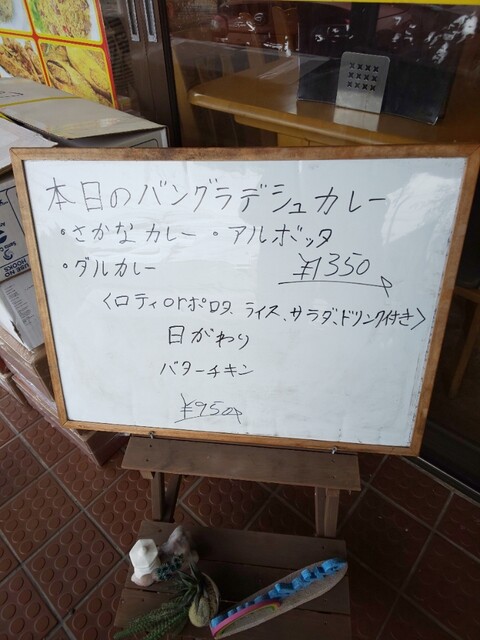 本日のバングラデシュカレー
・さかなカレー ・アルボッタ
・ダルカレー ¥1350
〈ロティorポロタ、ライス、サラダ、ドリンク付き〉
日がわり
バターチキン
¥950